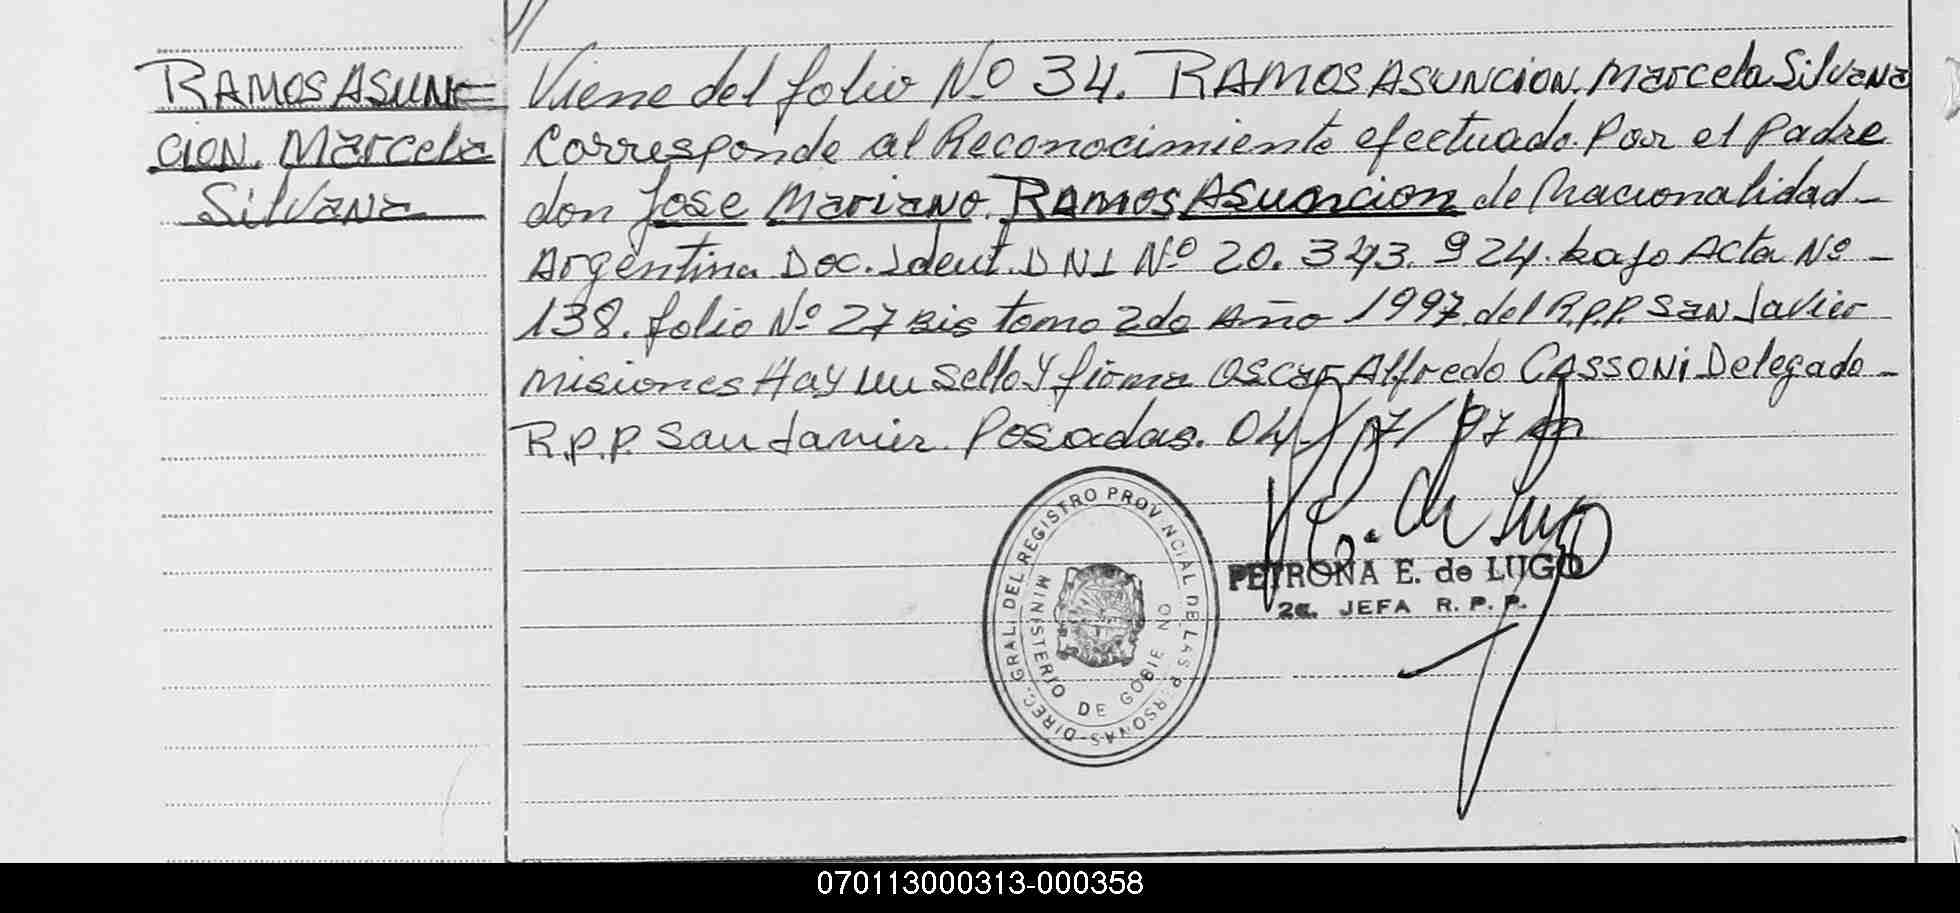 RAMOS ASUN=
CION. Marcela
Silvana
Viene del folio Nº 34. RAMOS ASUNCION. Marcela Silvana
Corresponde al Reconocimiento efectuado. Por el Padre
don Jose Mariano. RAMOS ASUNCION de Nacionalidad
Argentina Doc. Ident. DNI Nº 20. 343. 924. bajo Acta Nº
138. folio Nº 27 Bis tomo 2do Año 1997. del R.P.P. San Javier
Misiones Hay un Sello y firma Oscar Alfredo CASSONi Delegado
R.P.P. San Javier. Posadas. 04/17/97
PETRONA E. de LUGO
2a. JEFA R. P. P.
DIREC. GRAL. DEL REGISTRO PROVINCIAL DE LAS PERSONAS
MINISTERIO DE GOBIE NO
070113000313-000358